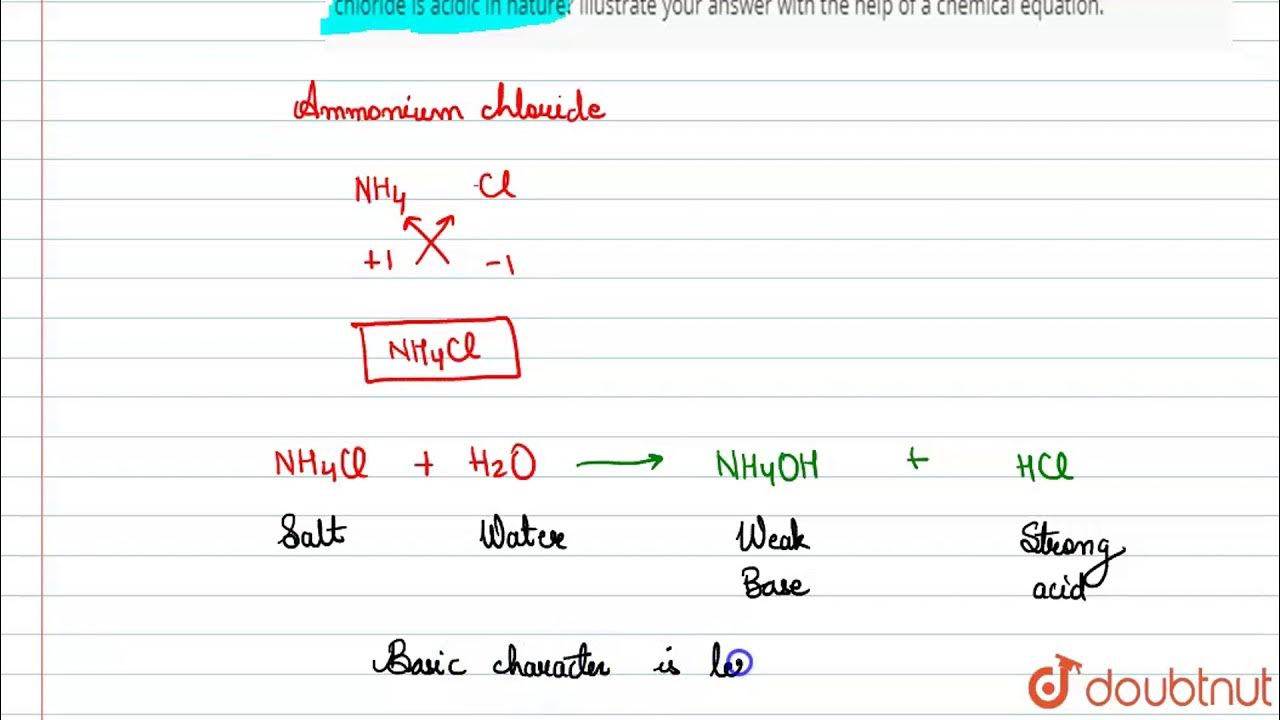 chloride is acidic in nature? Illustrate your answer with the help of a chemical equation.
Ammonium chloride
NH4 Cl
+1 -1
NH4Cl
NH4Cl + H2O → NH4OH + HCl
Salt Water Weak Strong
Base acid
Basic character is le
doubtnut